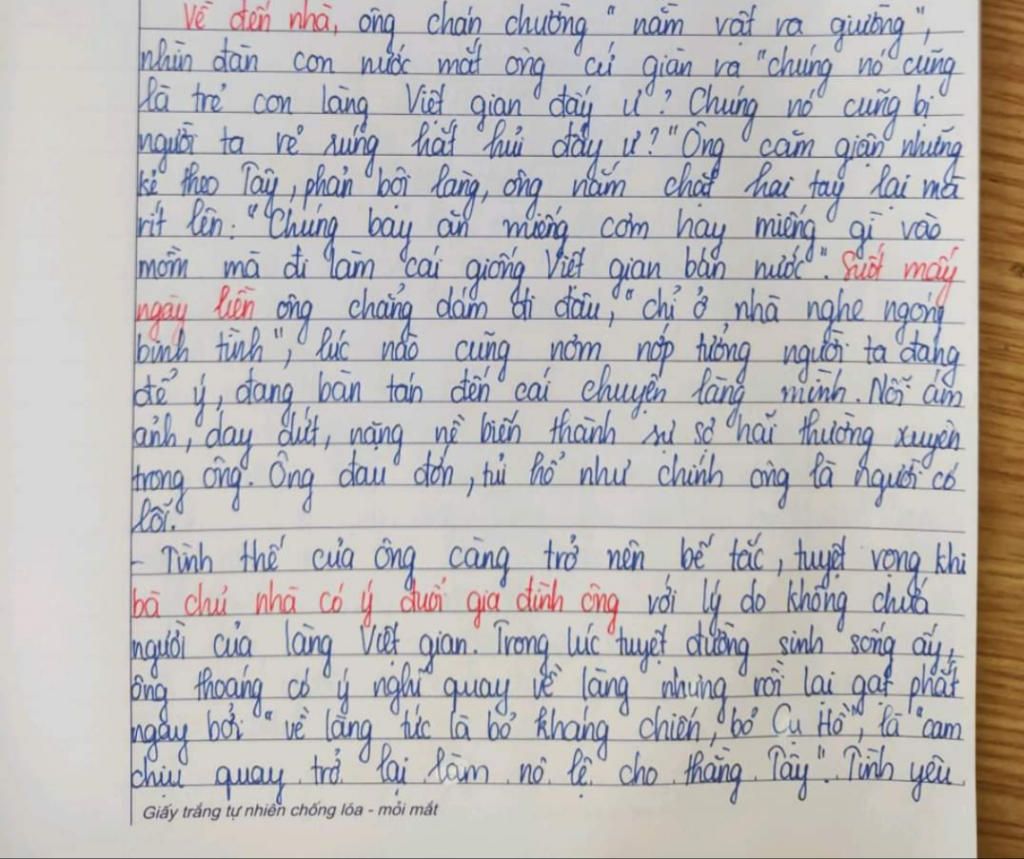 Về đến nhà, ông chán chường "nằm vật ra giường",
nhìn đàn con nước mắt ông cứ giàn ra "chúng nó cũng
là trẻ con làng Việt gian đấy ư? Chúng nó cũng bị
người ta rẻ rúng hắt hủi đấy ư?" Ông căm giận những
kẻ theo Tây, phản bội làng, ông nắm chặt hai tay lại mà
rít lên: "Chúng bay ăn miếng cơm hay miếng gì vào
mồm mà đi làm cái giống Việt gian bán nước". Suốt mấy
ngày liền ông chẳng dám đi đâu, "chỉ ở nhà nghe ngóng
binh tình", lúc nào cũng nơm nớp tưởng người ta đang
để ý, đang bàn tán đến cái chuyện làng mình. Nỗi ám
ảnh, day dứt, nặng nề biến thành sự sợ hãi thường xuyên
trong ông. Ông đau đớn, tủi hổ như chính ông là người có
lỗi.
- Tình thế của ông càng trở nên bế tắc, tuyệt vọng khi
bà chủ nhà có ý đuổi gia đình ông với lý do không chứa
người của làng Việt gian. Trong lúc tuyệt đường sinh sống ấy,
ông thoáng có ý nghĩ quay về làng nhưng rồi lại gạt phắt
ngay bởi "về làng tức là bỏ kháng chiến, bỏ Cụ Hồ", là "cam
chịu quay trở lại làm nô lệ cho thằng Tây". Tình yêu
Giấy trắng tự nhiên chống lóa - mỏi mắt